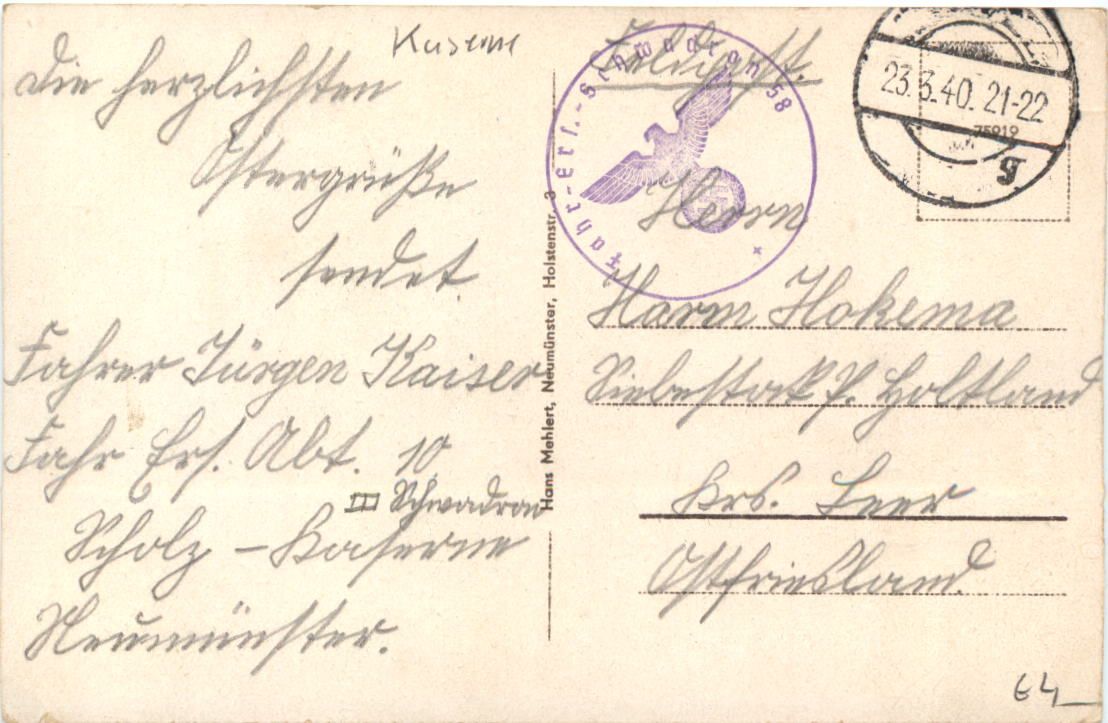 Kaserne
Die herzlichsten
Ostergrüße
sendet
Fahrer Jürgen Kaiser
Fahr Ers. Abt. 10
III Schwadron
Scholz – Kaserne
Neumünster.
Hans Mehlert, Neumünster, Holstenstr. 3
Feldpost.
Fahr-Ers.-Schwadron 58
23.3.40. 21-22
75919
g
Herrn
Harm Hokema
Siebestock P. Holtland
Krs. Leer
Ostfriesland.
64